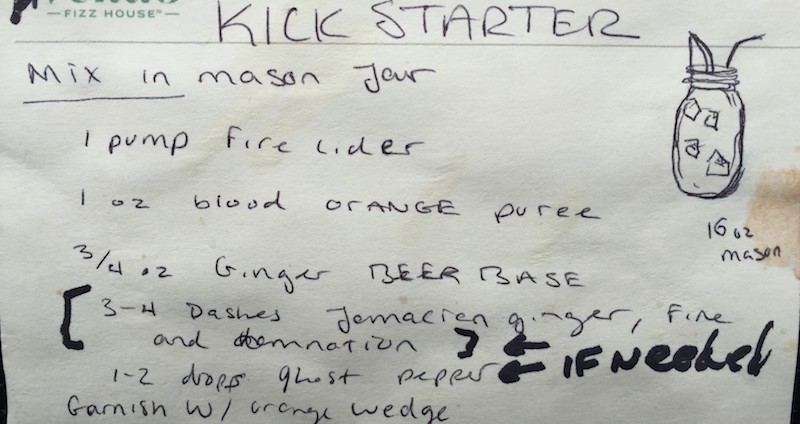 FIZZ HOUSE™
KICK STARTER
Mix in mason Jar
1 pump fire cider
1 oz blood orANGE puree
3/4 oz Ginger BEER BASE
[ 3-4 Dashes Jamacian ginger, Fire
and damnation ] ←
1-2 drops ghost pepper ← IF Needed
Garnish W/ orange wedge
16 oz
mason